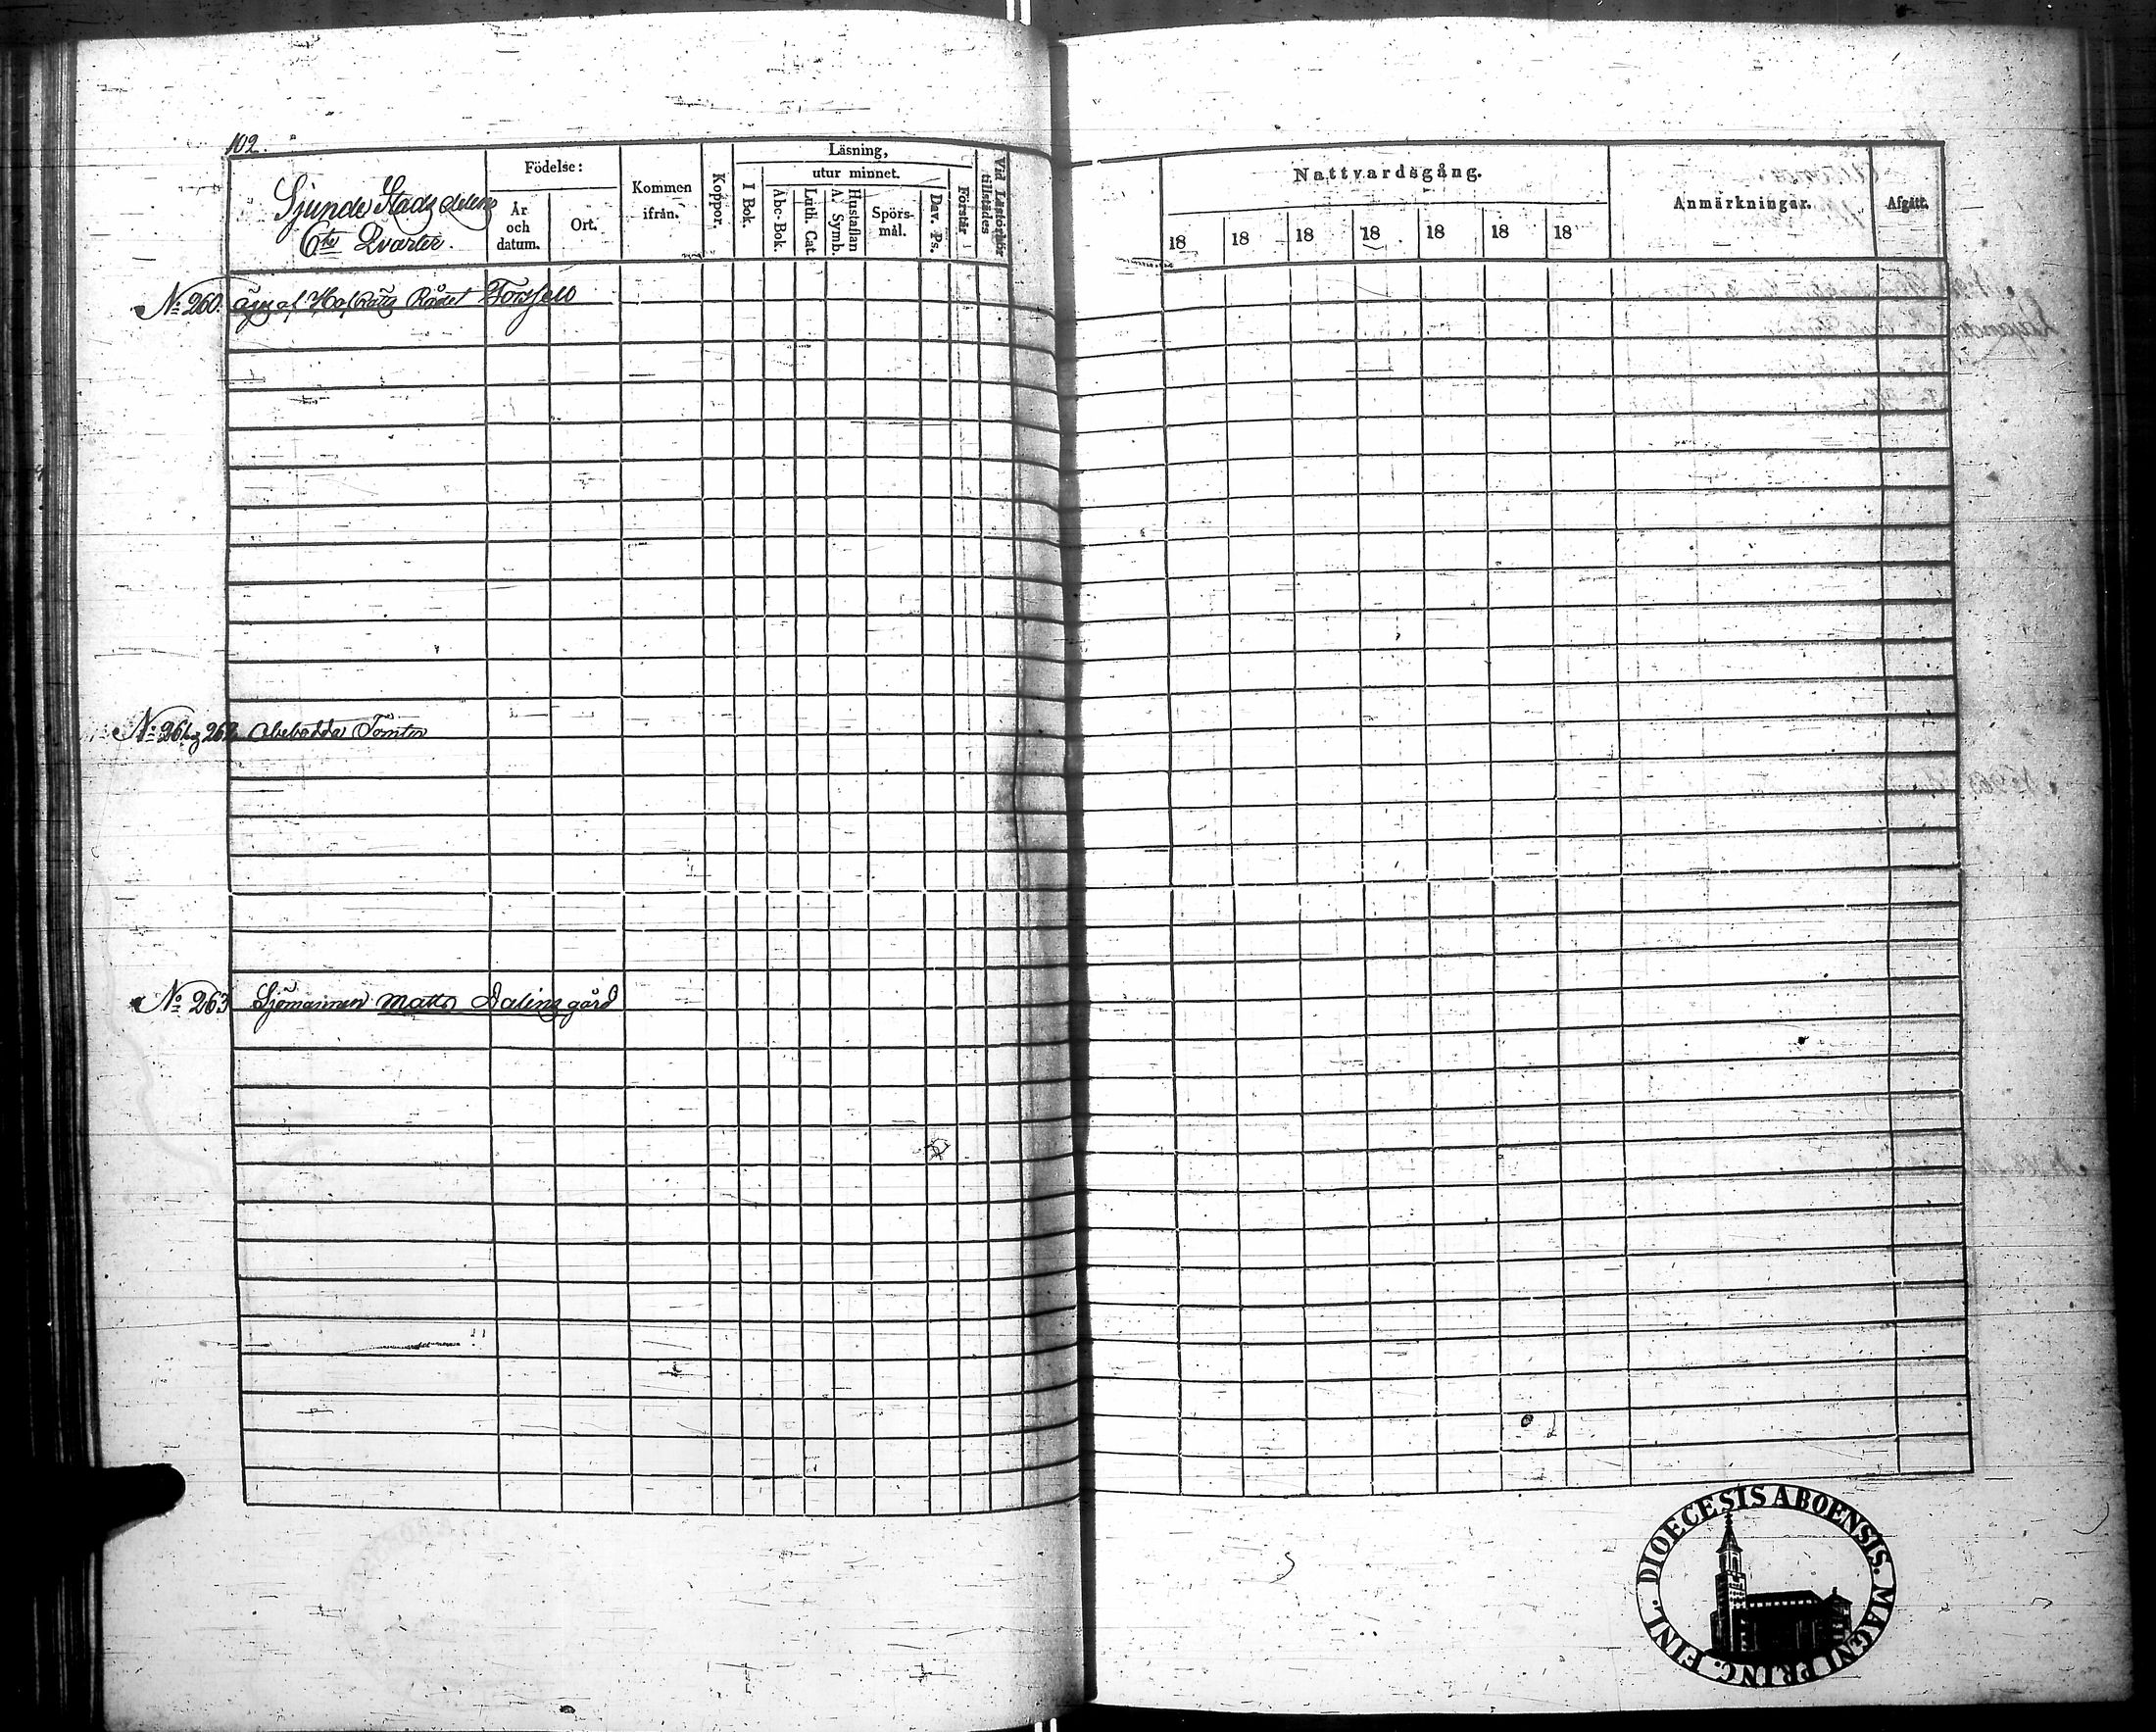 102.
Sjunde Stads delens
6te Qvarter.
Födelse:
År
och
datum.
Ort.
Kommen
ifrån.
Koppor.
Läsning,
I Bok.
utur minnet.
Abc-Bok.
Luth. Cat.
Hustaflan
A. Symb.
Spörs-
mål.
Dav. Ps.
Förstår
Vid Läsförhör
tillstädes
Nattvardsgång.
18 18 18 18 18 18 18
Anmärkningar.
Afgått.
No 260. äges af Hof Rätts Rådet
No 261, 262 Obebodda Tomter
No 263 Sjömannen Matts Dalins gård
DIOECESIS ABOENSIS. MAGNI PRINC. FINL.